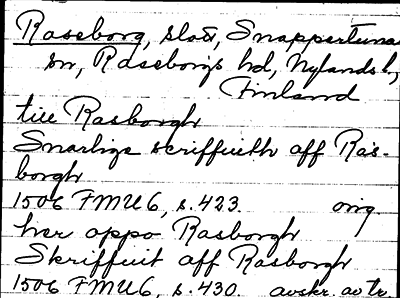 Raseborg, slott, Snappertuna
sn, Raseborgs hd, Nylands l,
Finland
till Rasborgh
Snarligx scriffuith aff Ras-
borgh
1506 FMU6, s. 423. orig.
her oppo Rasborgh
Skriffuit aff Rasborgh
1506 FMU6, s. 430. avskr. av tr.